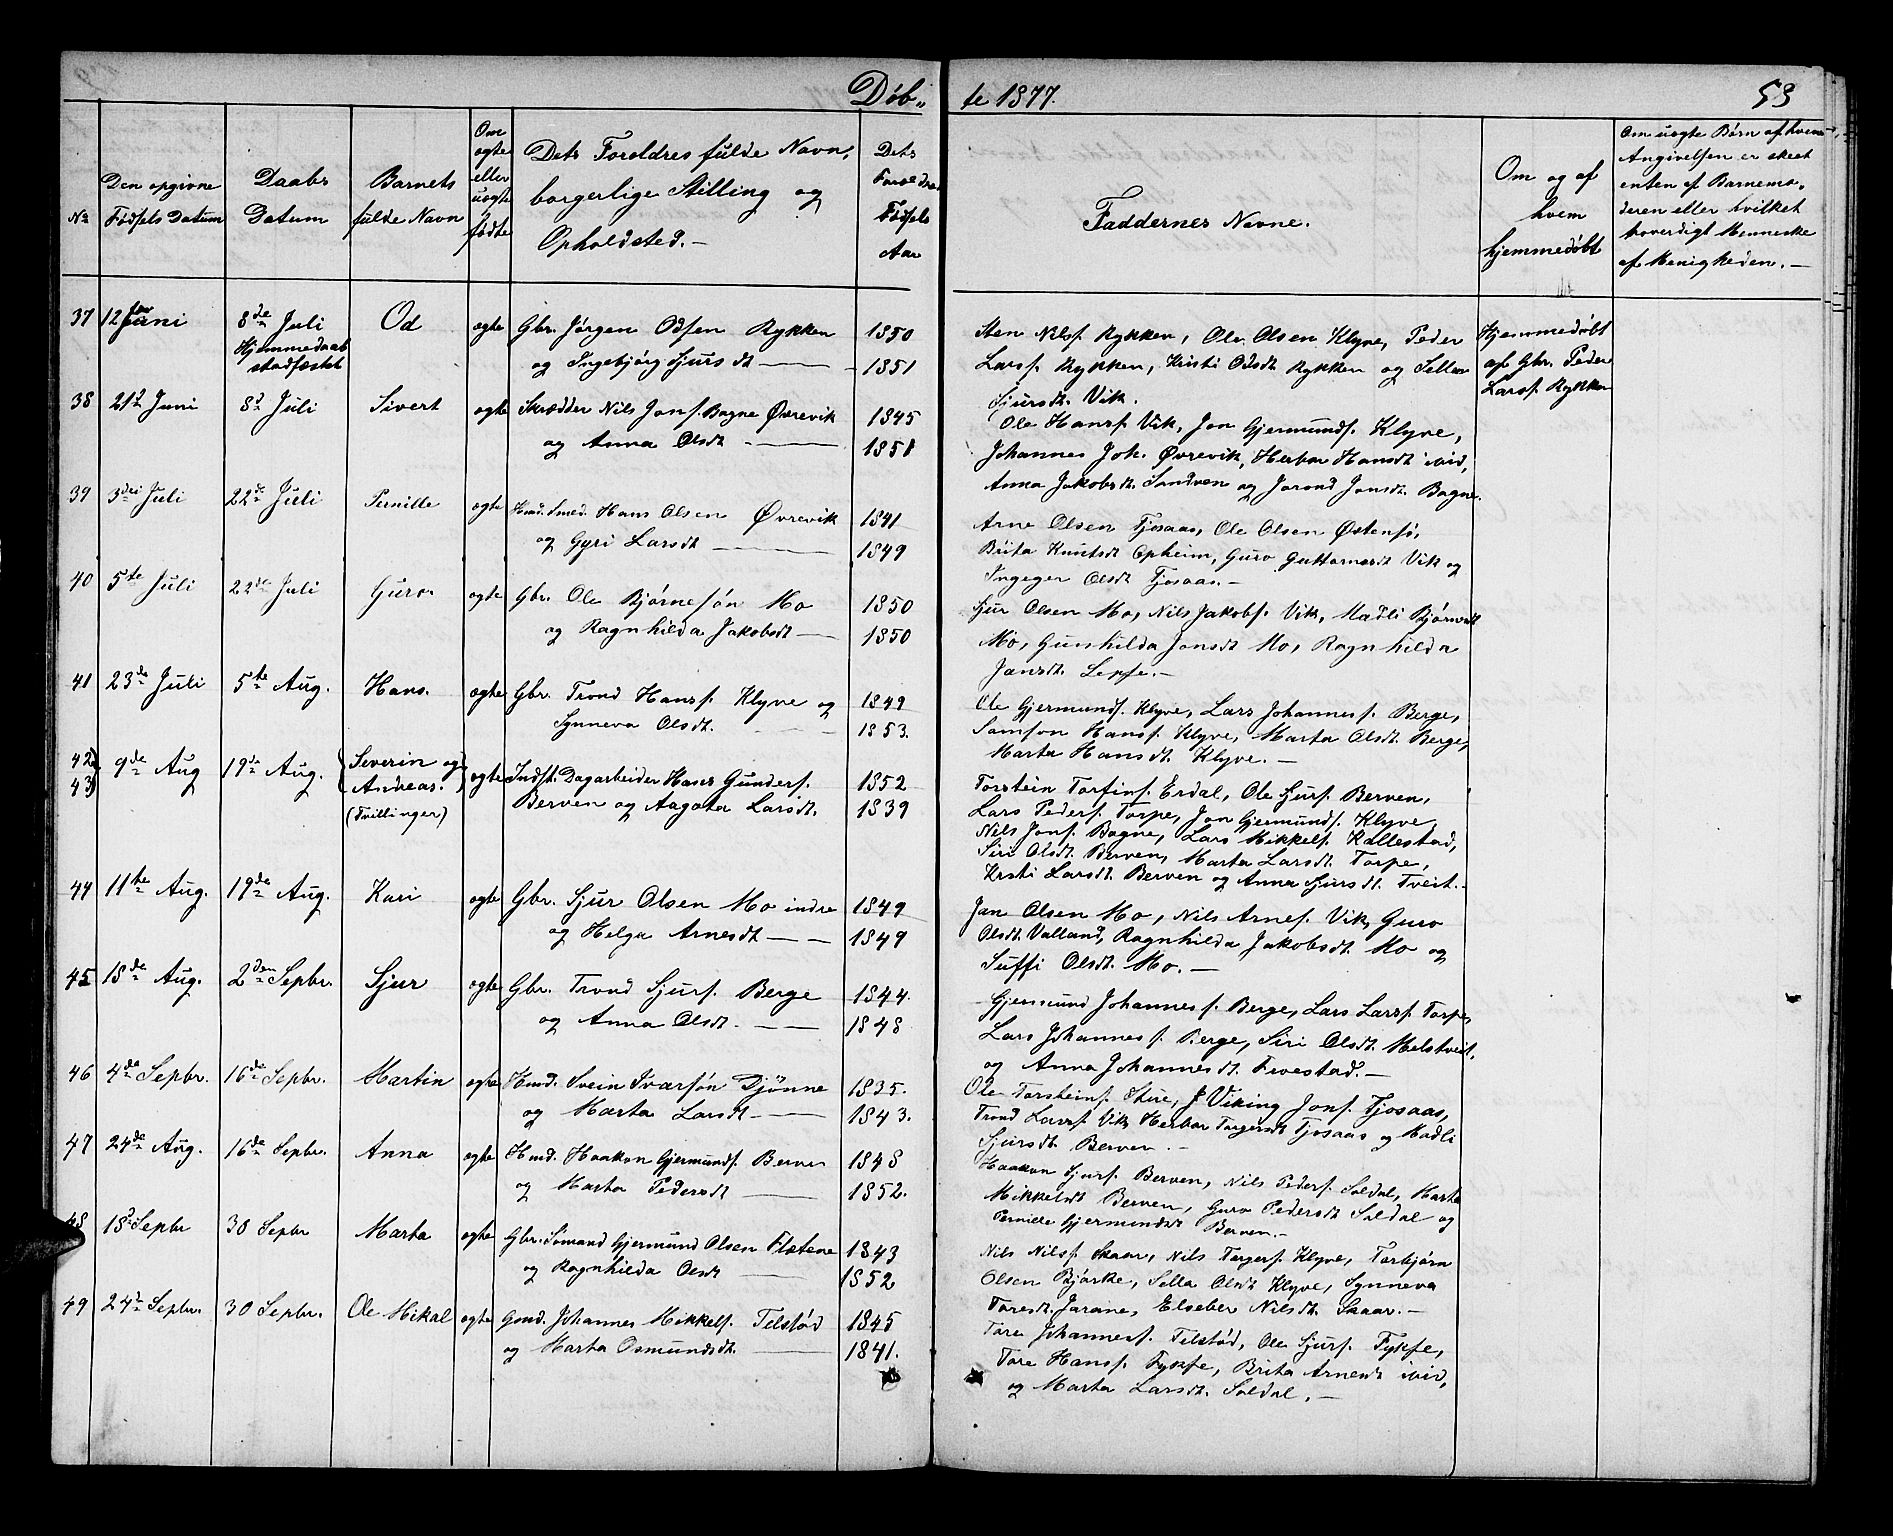 Døb„ te 1877. 53
No
Den opgivne Fødsels Datum
Daabs Datum
Barnets fulde Navn
Om ægte eller uægte fødte
Dets Foreldres fulde Navn, borgerlige Stilling og Opholdsted.—
Dets Foreldres Fødsels Aar
Faddernes Navne.
Om og af hvem hjemmedøbt
Om uægte Børn af hvem Angivelsen er skeet enten af Barnemoderen eller hvilket troverdigt Menneske af Menigheden.—
37 12 Juni 8de Juli Od ægte Gbr. Jørgen Odsen Rykken 1850
Hjemmedaab stadfæstet og Ingebjørg Sjursdt — 1851
Sten Nilss. Rykken, Ole Olsen Klyve, Peder
Larss. Rykken, Kristi Odsdt Rykken og Sella
Sjursdt. Vik.
Hjemmedøbt
af Gbr. Peder
Larss. Rykken
38 21d Juni 8d Juli Sivert ægte Skrædder Nils Jons. Bagne Øvrevik 1845
og Anna Olsdt — 1851
Ole Hanss. Vik, Jon Gjermunds. Klyve,
Johannes Joh. Øvrevik, Herbor Hansdt ibid,
Anna Jakobsdt. Sandven og Jorond Jonsdt. Bagne.
39 3die Juli 22de Juli Pernille ægte Hmd. Smed. Hans Olsen Øvrevik 1841
og Gyri Larsdt — 1849
Arne Olsen Tjosaas, Ole Olsen Østensø,
Brita Knutsdt Opheim, Guro Guttormsdt Vik og
Ingeger Olsdt Tjosaas.—
40 5te Juli 22de Juli Guro ægte Gbr. Ole Bjørnesøn Mo 1850
og Ragnhilda Jakobsdt — 1850
Sjur Olsen Mo, Nils Jakobs. Vik, Madli Bjørnsdt
Mo, Gunhilda Jonsdt Mo, Ragnhilda
Jansdt Lepse.—
41 23de Juli 5te Aug. Hans. ægte Gbr. Trond Hanss. Klyve og 1849
Synneva Olsdt. 1853.
Ole Gjermunds. Klyve, Lars Johanness. Berge,
Samson Hanss. Klyve, Marta Olsdt. Berge,
Marta Hansdt. Klyve.—
42 43 9de Aug 19de Aug. Severin og Andreas. (Tvillinger) ægte Indst. Dagarbeider Hans Gunders. 1852
Berven og Aagata Larsdt. 1839
Torstein Torfins. Erdal, Ole Sjurs. Berven,
Lars Peders. Torpe, Jon Gjermunds. Klyve,
Nils Jons. Bagne, Lars Mikkels. Kallestad,
Siri Olsdt. Berven, Marta Larsdt. Torpe,
Kristi Larsdt. Berven og Anna Sjursdt. Tveit.
44 11te Aug. 19de Aug. Kari ægte Gbr. Sjur Olsen Mo indre 1849
og Helga Arnesdt — 1849
Jan Olsen Mo, Nils Arnes. Vik, Guro
Olsdt. Valland, Ragnhilda Jakobsdt. Mo og
Suffi Olsdt. Mo.—
45 18de Aug. 2den Sepbr. Sjur ægte Gbr. Trond Sjurs. Berge 1844.
og Anna Olsdt. — 1848
Gjermund Johanness. Berge, Lars Larss. Torpe,
Lars Johanness. Berge, Siri Olsdt. Melstveit,
og Anna Johannesdt. Fivestad.—
46 4de Sepbr. 16de Sepbr. Martin ægte Hmd. Svein Ivarsøn Djønne 1835.
og Marta Larsdt — 1843.
Ole Torsteins. Sture, Viking Jons. Tjosaas,
Trond Larss. Vik, Herbor Torgersdt Tjosaas og Madli
Sjursdt. Berven.—
47 24de Aug. 16de Sepbr. Anna ægte Hmd. Haakon Gjermunds. Berven 1848
og Marta Pedersdt — 1852.
Haakon Sjurs. Berven, Nils Peders. Soldal, Marta
Mikkelsdt Berven, Guro Pedersdt Soldal og
Pernille Gjermundsdt Berven.—
48 18d Sepbr 30 Sepbr Marta ægte Gbr. Sømand Gjermund Olsen Flatene 1843
og Ragnhilda Olsdt — 1852
Nils Nilss. Skaar, Nils Torgers. Klyve, Torbjørn
Olsen Bjørke, Sella Olsdt Klyve, Synneva
Toresdt. Jarane, Elseber Nilsdt. Skaar.—
49 24de Sepbr. 30 Sepbr. Ole Mikal ægte Gmd. Johannes Mikkels. Telstød 1845
og Marta Osmundsdt. — 1841.
Tore Johanness. Telstød, Ole Sjurs. Fykse,
Tore Hanss. Fykse, Brita Arnesdt ibid,
og Marta Larsdt. Soldal.—